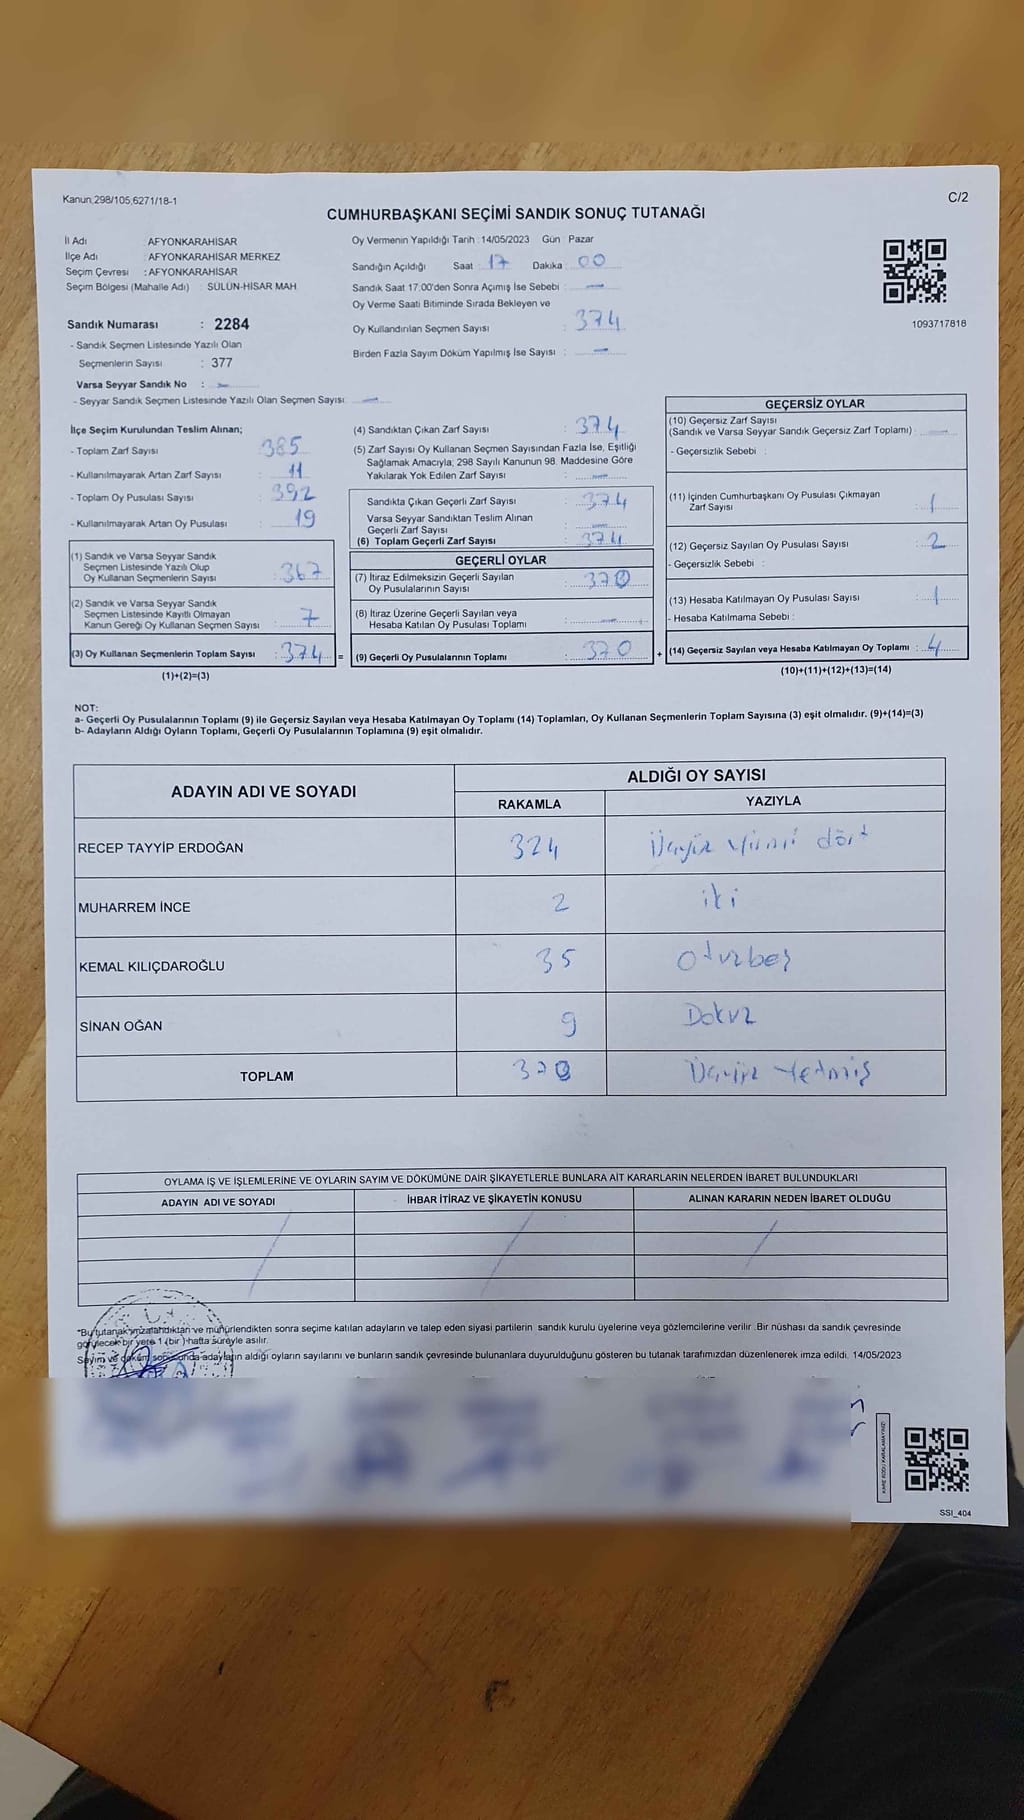 Kanun,298/105,6271/18-1
C/2
CUMHURBAŞKANI SEÇİMİ SANDIK SONUÇ TUTANAĞI
İl Adı : AFYONKARAHİSAR
İlçe Adı : AFYONKARAHİSAR MERKEZ
Seçim Çevresi : AFYONKARAHİSAR
Seçim Bölgesi (Mahalle Adı) : SÜLÜN-HİSAR MAH
Sandık Numarası : 2284
- Sandık Seçmen Listesinde Yazılı Olan
Seçmenlerin Sayısı : 377
Varsa Seyyar Sandık No : -
- Seyyar Sandık Seçmen Listesinde Yazılı Olan Seçmen Sayısı: -
Oy Vermenin Yapıldığı Tarih :14/05/2023 Gün Pazar
Sandığın Açıldığı Saat : 17 Dakika : 00
Sandık Saat 17:00'den Sonra Açımış İse Sebebi : -
Oy Verme Saati Bitiminde Sırada Bekleyen ve
Oy Kullandırılan Seçmen Sayısı : 374
Birden Fazla Sayım Döküm Yapılmış İse Sayısı : -
1093717816
İlçe Seçim Kurulundan Teslim Alınan;
- Toplam Zarf Sayısı : 385
- Kullanılmayarak Artan Zarf Sayısı : 11
- Toplam Oy Pusulası Sayısı : 392
- Kullanılmayarak Artan Oy Pusulası : 19
(1) Sandık ve Varsa Seyyar Sandık
Seçmen Listesinde Yazılı Olup
Oy Kullanan Seçmenlerin Sayısı : 367
(2) Sandık ve Varsa Seyyar Sandık
Seçmen Listesinde Kayıtlı Olmayan
Kanun Gereği Oy Kullanan Seçmen Sayısı : 7
(3) Oy Kullanan Seçmenlerin Toplam Sayısı : 374 =
(1)+(2)=(3)
(4) Sandıktan Çıkan Zarf Sayısı : 374
(5) Zarf Sayısı Oy Kullanan Seçmen Sayısından Fazla İse, Eşitliği
Sağlamak Amacıyla; 298 Sayılı Kanunun 98. Maddesine Göre
Yakılarak Yok Edilen Zarf Sayısı : -
Sandıkta Çıkan Geçerli Zarf Sayısı : 374
Varsa Seyyar Sandıktan Teslim Alınan
Geçerli Zarf Sayısı : -
(6) Toplam Geçerli Zarf Sayısı : 374
GEÇERLİ OYLAR
(7) İtiraz Edilmeksizin Geçerli Sayılan
Oy Pusulalarının Sayısı : 370
(8) İtiraz Üzerine Geçerli Sayılan veya
Hesaba Katılan Oy Pusulası Toplamı : -
(9) Geçerli Oy Pusulalarının Toplamı : 370 +
GEÇERSİZ OYLAR
(10) Geçersiz Zarf Sayısı
(Sandık ve Varsa Seyyar Sandık Geçersiz Zarf Toplamı) : -
- Geçersizlik Sebebi :
(11) İçinden Cumhurbaşkanı Oy Pusulası Çıkmayan
Zarf Sayısı : 1
(12) Geçersiz Sayılan Oy Pusulası Sayısı : 2
- Geçersizlik Sebebi :
(13) Hesaba Katılmayan Oy Pusulası Sayısı : 1
- Hesaba Katılmama Sebebi :
(14) Geçersiz Sayılan veya Hesaba Katılmayan Oy Toplamı : 4
(10)+(11)+(12)+(13)=(14)
NOT:
a- Geçerli Oy Pusulalarının Toplamı (9) ile Geçersiz Sayılan veya Hesaba Katılmayan Oy Toplamı (14) Toplamları, Oy Kullanan Seçmenlerin Toplam Sayısına (3) eşit olmalıdır. (9)+(14)=(3)
b- Adayların Aldığı Oyların Toplamı, Geçerli Oy Pusulalarının Toplamına (9) eşit olmalıdır.
ADAYIN ADI VE SOYADI
ALDIĞI OY SAYISI
RAKAMLA YAZIYLA
RECEP TAYYİP ERDOĞAN 324 Üçyüz yirmi dört
MUHARREM İNCE 2 iki
KEMAL KILIÇDAROĞLU 35 Otuzbeş
SİNAN OĞAN 9 Dokuz
TOPLAM 370 Üçyüz Yetmiş
OYLAMA İŞ VE İŞLEMLERİNE VE OYLARIN SAYIM VE DÖKÜMÜNE DAİR ŞİKAYETLERLE BUNLARA AİT KARARLARIN NELERDEN İBARET BULUNDUKLARI
ADAYIN ADI VE SOYADI İHBAR İTİRAZ VE ŞİKAYETİN KONUSU ALINAN KARARIN NEDEN İBARET OLDUĞU
*Bu tutanak imzalandıktan ve mühürlendikten sonra seçime katılan adayların ve talep eden siyasi partilerin sandık kurulu üyelerine veya gözlemcilerine verilir. Bir nüshası da sandık çevresinde
görülecek bir yere 1 (bir) hafta süreyle asılır.
Sayım ve döküm sonucunda adayların aldığı oyların sayılarını ve bunların sandık çevresinde bulunanlara duyurulduğunu gösteren bu tutanak tarafımızdan düzenlenerek imza edildi. 14/05/2023
KARE KODU KARALAMAYINIZ!
SSI_404